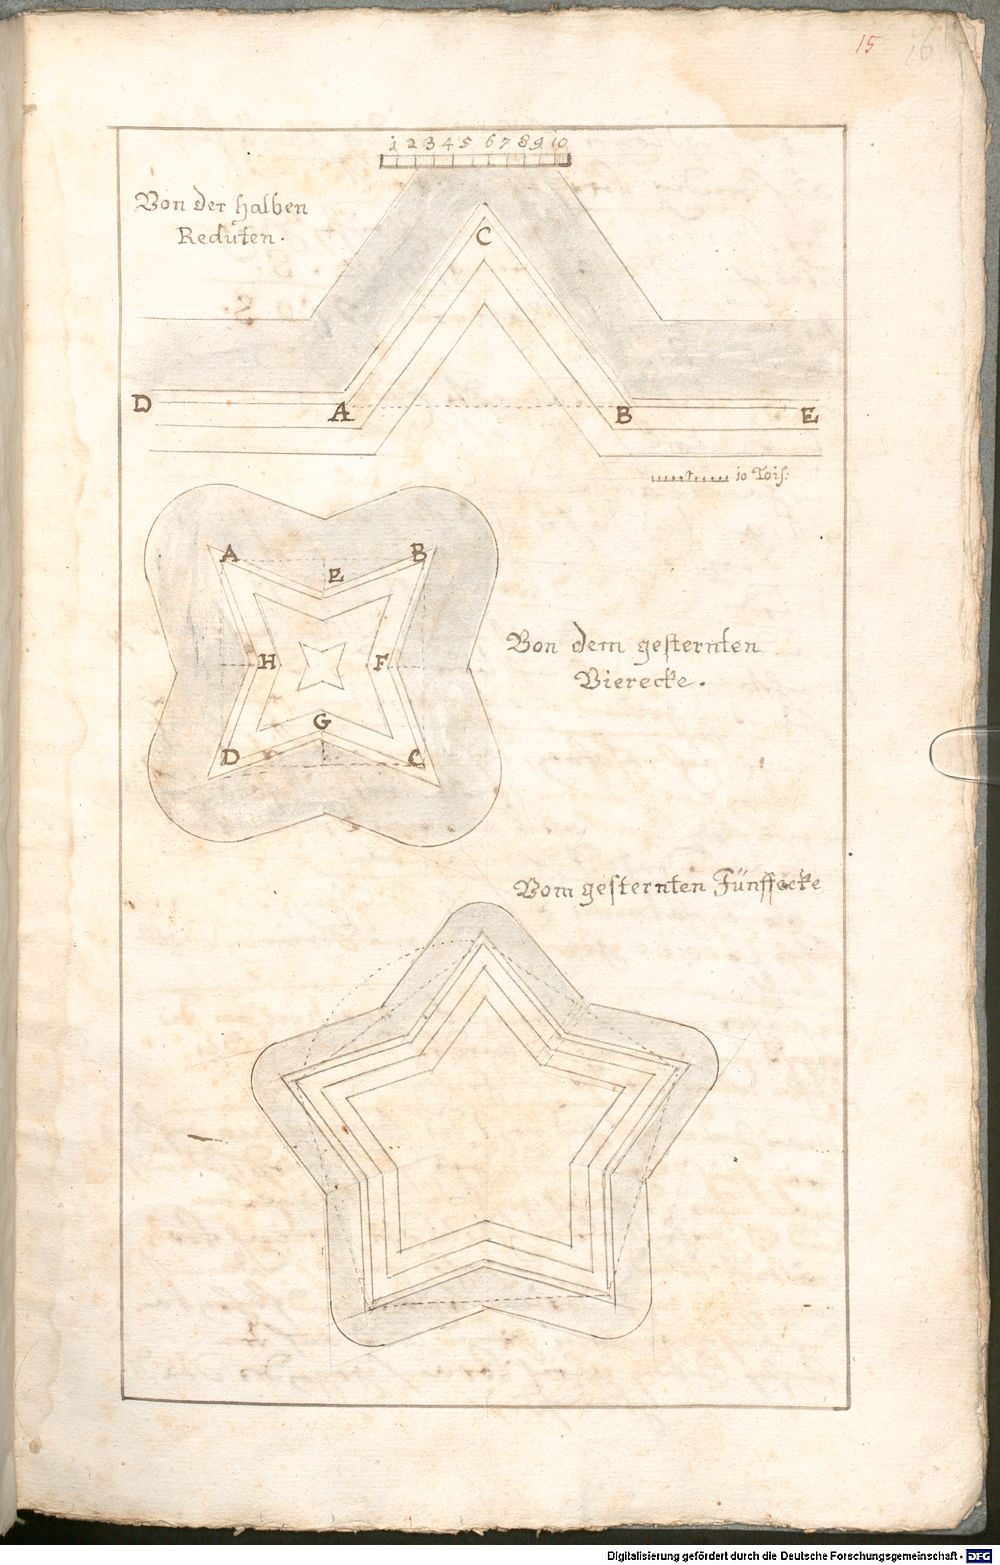 15 16
1 2 3 4 5 6 7 8 9 10
Von der halben
Reduten.
C
D A B E
10 Tois:
A B
E
H F
G
D C
Von dem gesternten
Vierecke.
Vom gesternten Fünffecke
Digitalisierung gefördert durch die Deutsche Forschungsgemeinschaft - DFG